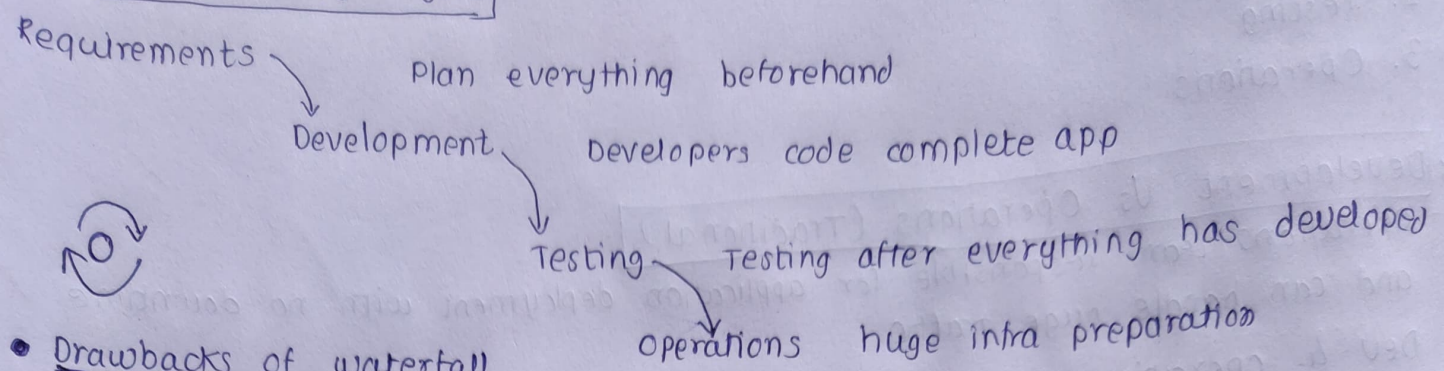 Requirements
Plan everything beforehand
Development
Developers code complete app
Testing
Testing after everything has developed
Operations
huge infra preparation
• Drawbacks of waterfall